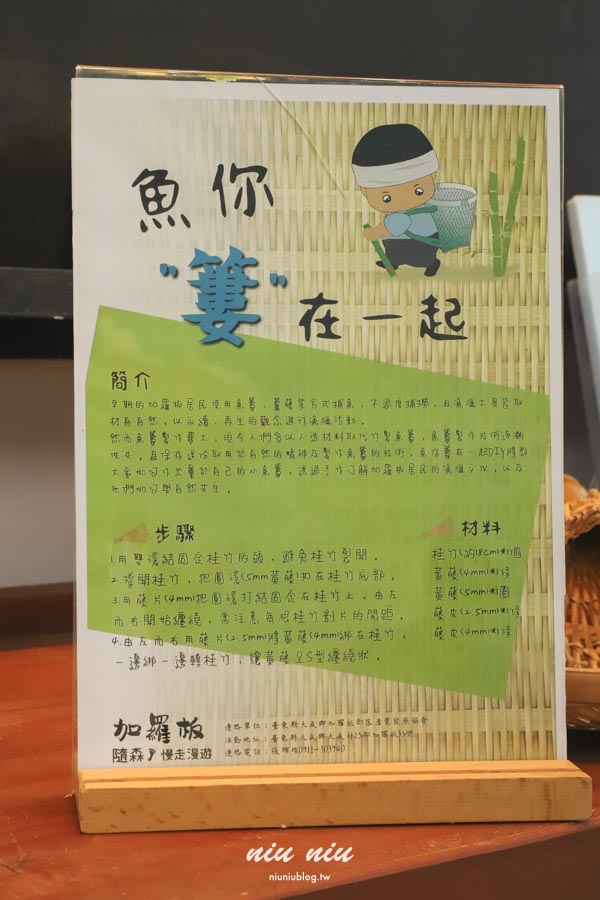 魚你
"簍"在一起
簡介
早期的加羅板居民使用魚簍、魚藤等方式捕魚，不過度捕撈，且漁獵工具皆取
材自自然，以永續、再生的觀念進行漁獵活動。
然而魚簍製作費工，現今人們多以人造材料取代竹製魚簍，魚簍製作技術逐漸
流失。為保存這份取用於自然的精神及製作魚簍的技術，魚你簍在一起DIY將帶
大家如何作出屬於自己的小魚簍，透過手作了解加羅板居民的漁獵文化，以及
他們如何與自然共生。
步驟
1.用雙環結固定桂竹的頭，避免桂竹裂開。
2.撐開桂竹，把圓環(5mm黃藤)扣在桂竹底部。
3.用藤片(4mm)把圓環打結固定在桂竹上，由左
而右開始纏繞，需注意每根桂竹剖片的間距。
4.由左而右用藤片(2.5mm)將黃藤(4mm)綁在桂竹，
一邊綁一邊轉桂竹，讓黃藤呈S型纏繞狀。
材料
桂竹(約18cm)*1個
黃藤(4mm)*1條
黃藤(5mm)*1圈
藤皮(2.5mm)*1條
藤皮(4mm)*1條
加羅板
隨森，慢走漫遊
連絡單位：臺東縣大武鄉加羅板部落產業發展協會
活動地址：臺東縣大武鄉大武村25鄰加羅板35號
連絡電話：張輝 0911-303940
niu niu
niuniublog.tw